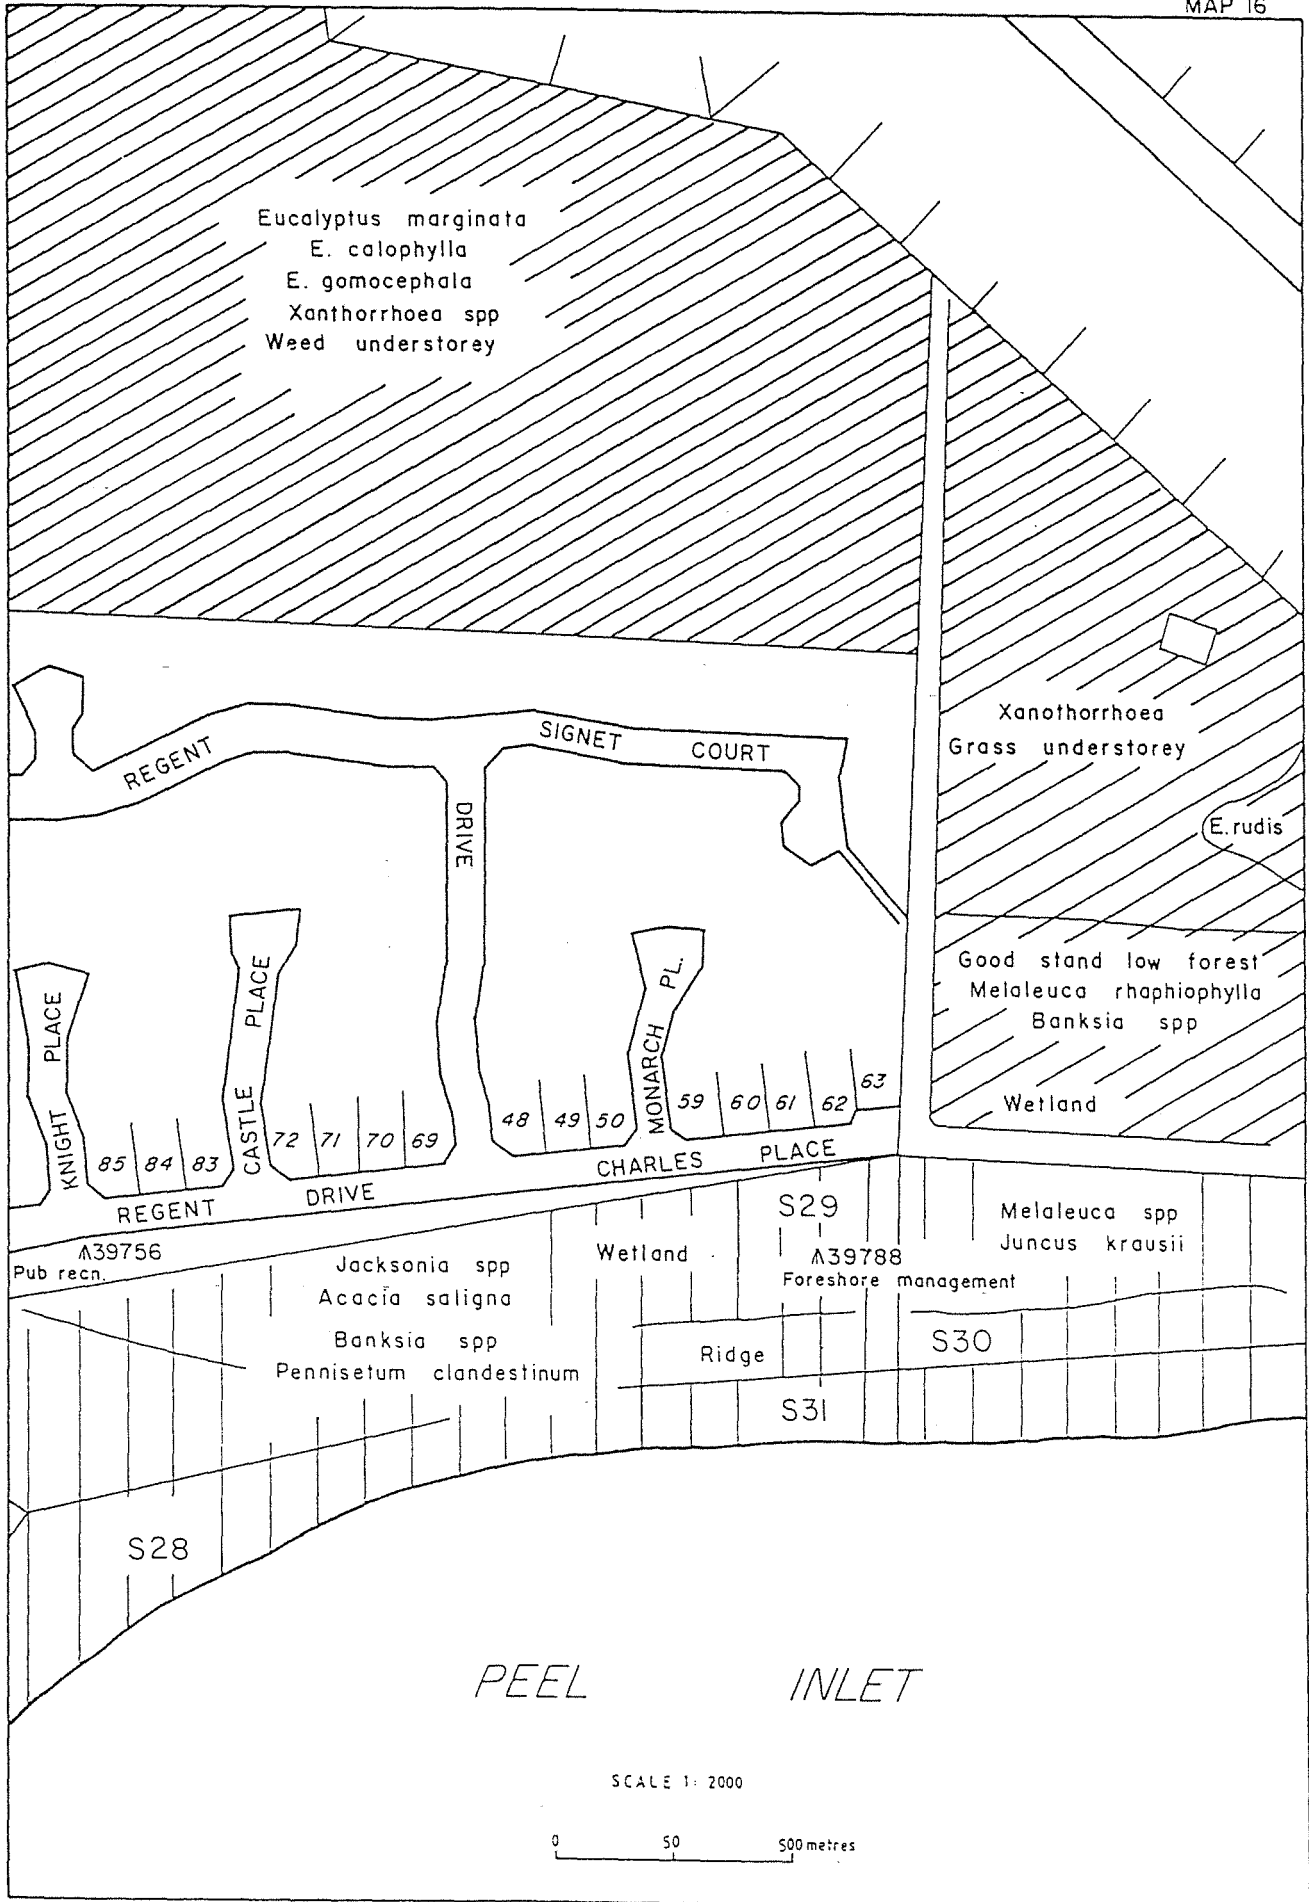 MAP 16
Eucalyptus marginata
E. calophylla
E. gomocephala
Xanthorrhoea spp
Weed understorey
Xanothorrhoea
Grass understorey
E. rudis
REGENT
DRIVE
SIGNET COURT
Good stand low forest
Melaleuca rhaphiophylla
Banksia spp
Wetland
KNIGHT PLACE
CASTLE PLACE
MONARCH PL.
85 84 83
72 71 70 69
48 49 50
59 60 61 62 63
REGENT DRIVE
CHARLES PLACE
A39756
Pub recn.
Jacksonia spp
Acacia saligna
Banksia spp
Pennisetum clandestinum
Wetland
S29
A39788
Foreshore management
Melaleuca spp
Juncus krausii
Ridge
S30
S31
S28
PEEL INLET
SCALE 1: 2000
0 50 500 metres